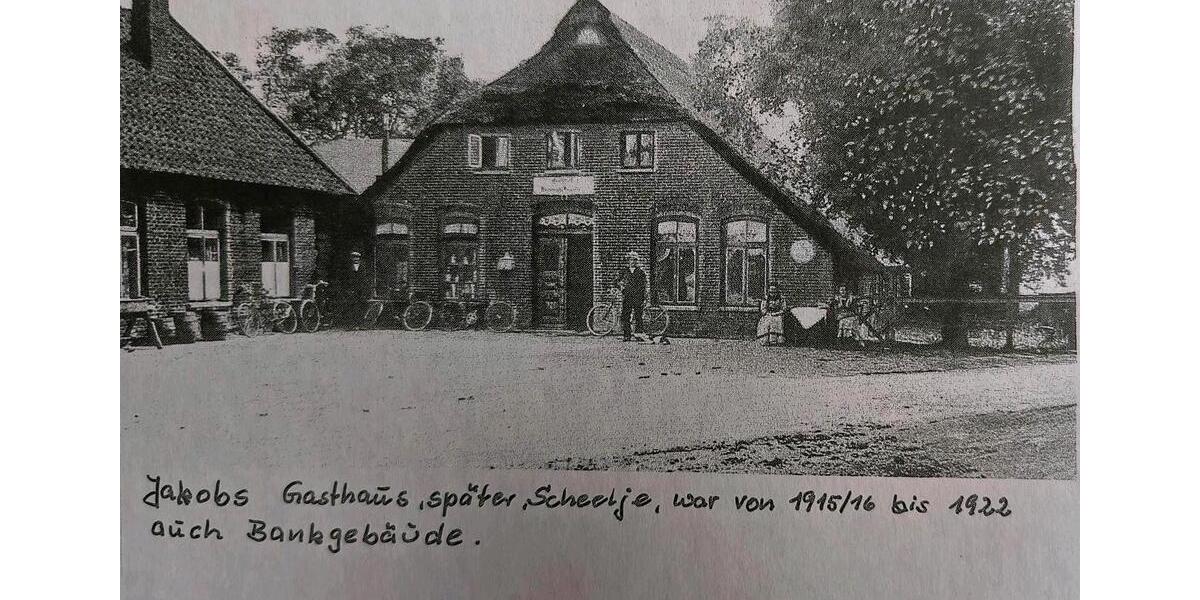 Jakobs Gasthaus, später, Scheelje, war von 1915/16 bis 1922
auch Bankgebäude.